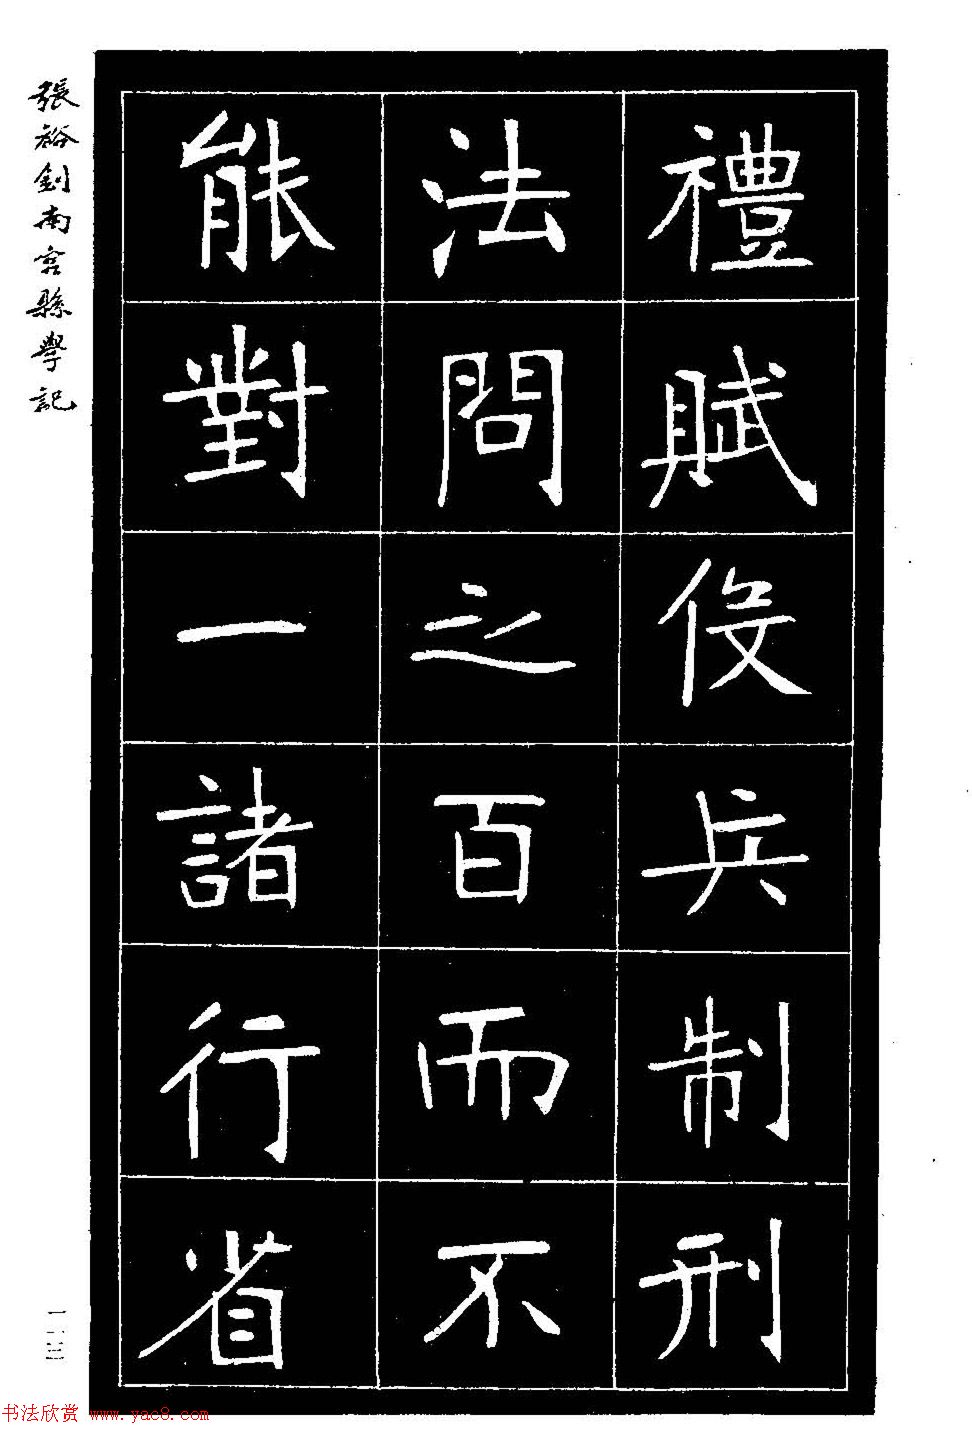 禮賦役兵制刑
法問之百而不
能對一諸行省
張裕釗南宮縣學記
一一三
书法欣赏 www.yac8.com